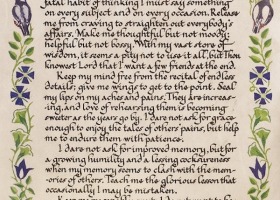 fatal habit of thinking I must say something
on every subject and on every occasion. Release
me from craving to straighten out everybody's
affairs. Make me thoughtful but not moody;
helpful but not bossy. With my vast store of
wisdom, it seems a pity not to use it all, but Thou
knowest Lord that I want a few friends at the end.
Keep my mind free from the recital of endless
details; give me wings to get to the point. Seal
my lips on my aches and pains. They are increas-
ing, and love of rehearsing them is becoming
sweeter as the years go by. I dare not ask for grace
enough to enjoy the tales of others' pains, but help
me to endure them with patience.
I dare not ask for improved memory, but for
a growing humility and a lessing cocksureness
when my memory seems to clash with the mem-
ories of others. Teach me the glorious lesson that
occasionally I may be mistaken.